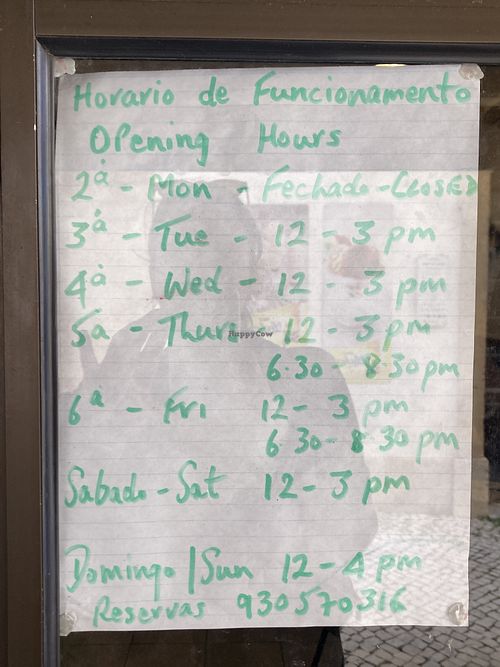 Horario de Funcionamento
Opening Hours
2ª - Mon - Fechado - CLOSED
3ª - Tue - 12 - 3 pm
4ª - Wed - 12 - 3 pm
5a - Thur - 12 - 3pm
HappyCow
6.30 - 8 30 pm
6ª - Fri 12 - 3 pm
6 30 - 8 30 pm
Sabado - Sat 12 - 3 pm
Domingo | Sun 12 - 4 pm
Reservas 930570316